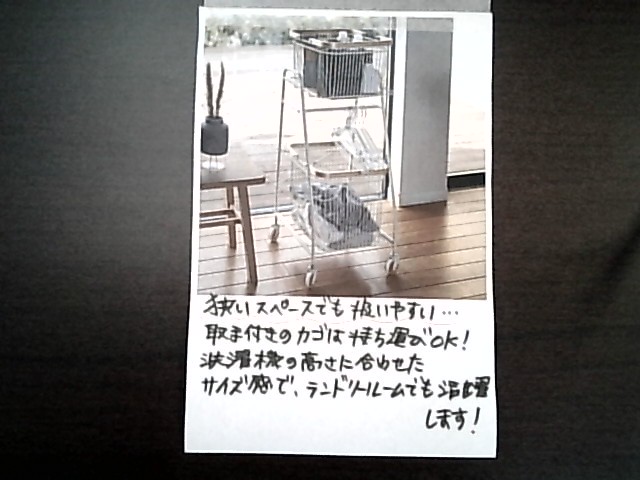 狭いスペースでも扱いやすい…
取手付きのカゴは持ち運びOK!
洗濯機の高さに合わせた
サイズ感で、ランドリールームでも活躍
します!